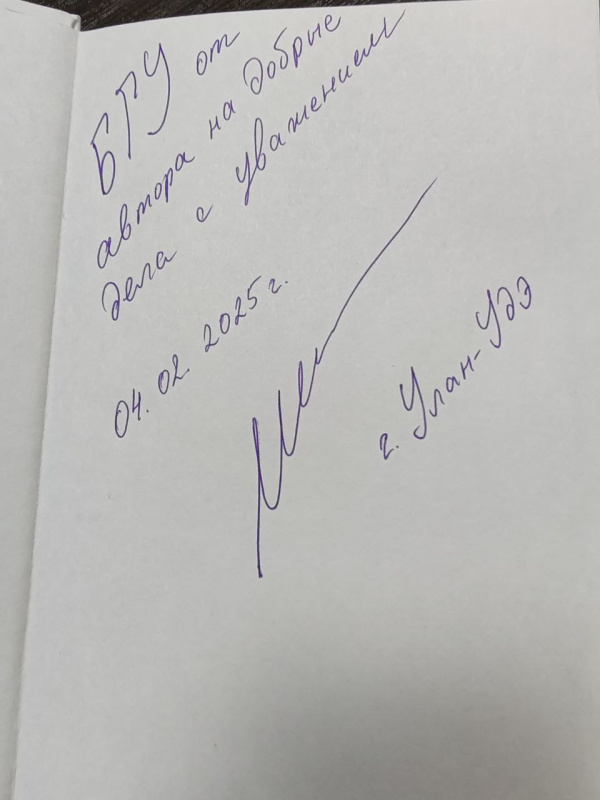 БГУ от
автора на добрые
дела с уважением
04.02.2025г.
г. Улан-Удэ